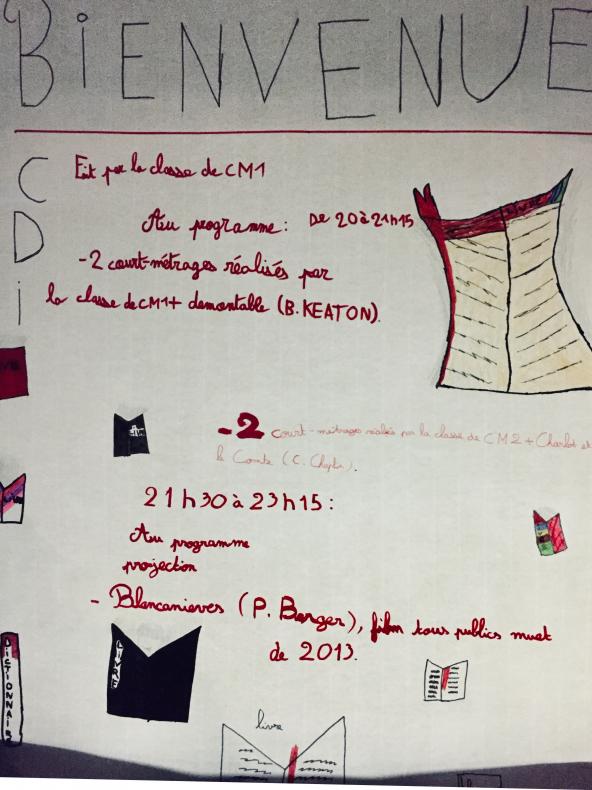 BiENVENUE
CDi
Fait par la classe de CM1
Au programme : De 20 à 21h15
- 2 court-métrages réalisés par
la classe de CM1 + demontable (B. KEATON).
- 2 court-métrages réalisés par la classe de CM2 + Charlot et
le Comte (C. Chaplin).
21h30 à 23h15 :
Au programme
projection
- Blancanieves (P. Berger), film tous publics muet
de 2013.
LIVRE
DICTIONNAIRE
livre